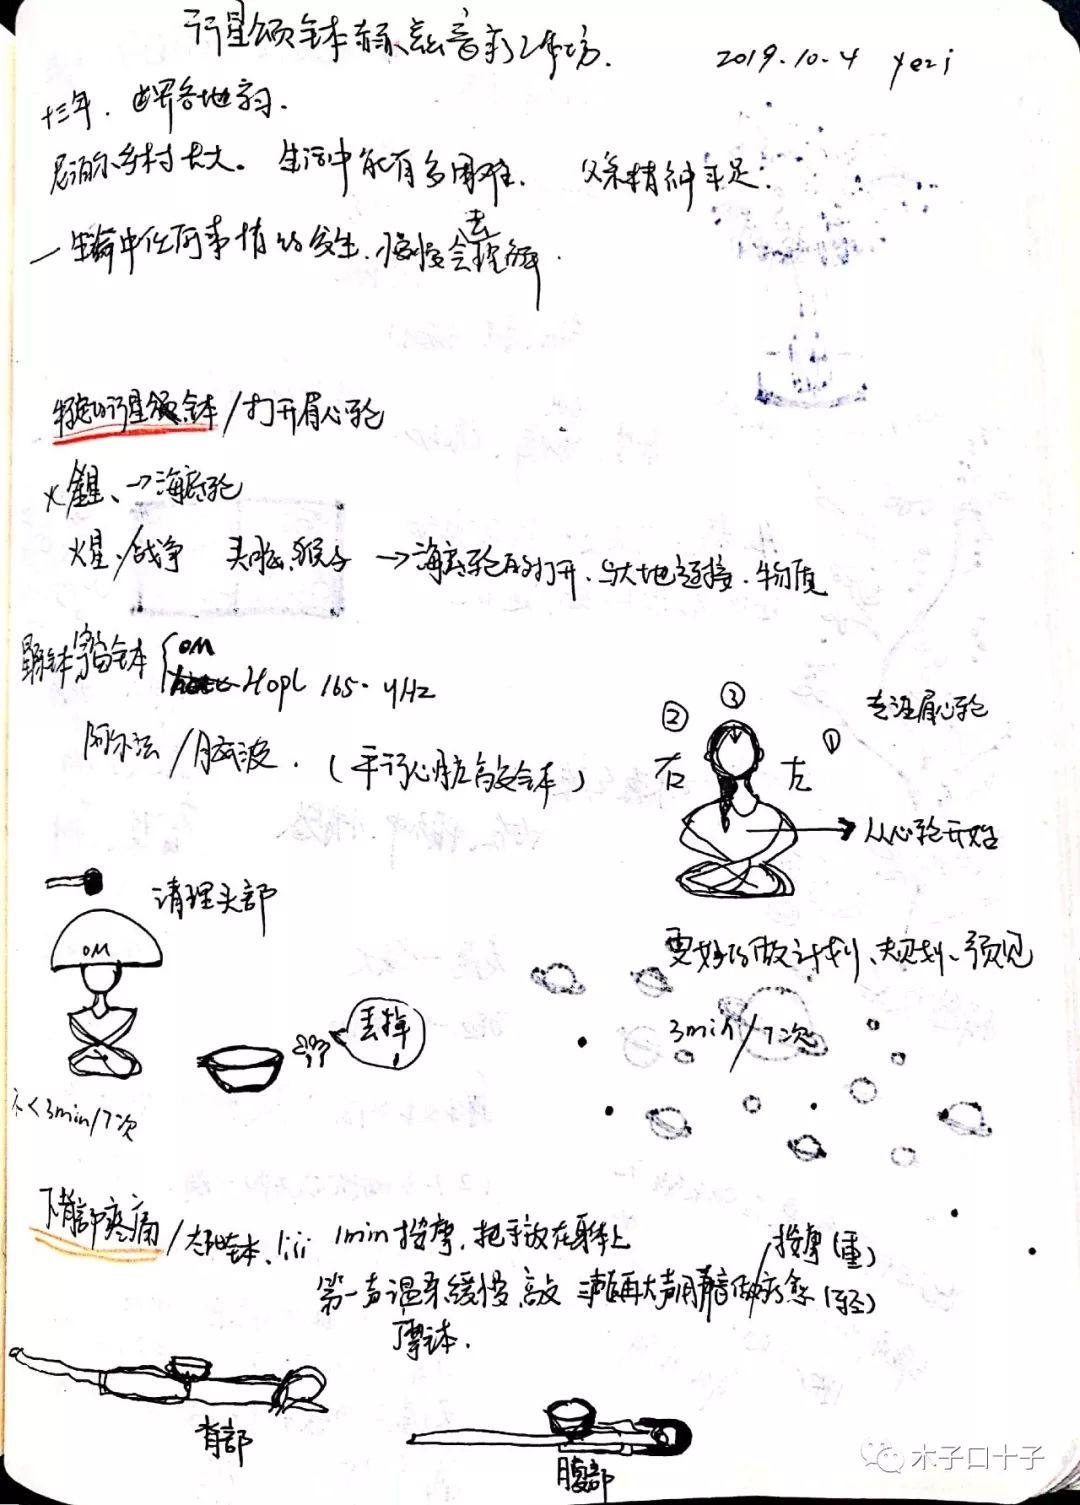 行星颂钵 音 工作坊. 2019.10.4 yezi
十三年. 世界各地
尼泊尔乡村长大。生活中能有多困难. 父亲精神 足.
一生 中任何事情的发生. 慢慢会去理解.
行星颂钵/打开眉心轮
火星、→海底轮
火星/战争 头脑.猴子 →海底轮的打开.与大地连接.物质
钵 宇宙钵
OM
Hopl 165. 4Hz
阿尔法/脑波. (平行心脏 钵)
③
②
①
右
左
专注眉心轮
从心轮开始
清理头部
OM
更好的做计划、规划、预见
3min/7次
丢掉!
<3min/7次
下背部疼痛/ 钵. 1min按摩, 把手放在身体上
按摩(重)
第一声温柔缓慢, 再大声 疗愈(轻)
摩钵.
背部
腹部
木子口十子